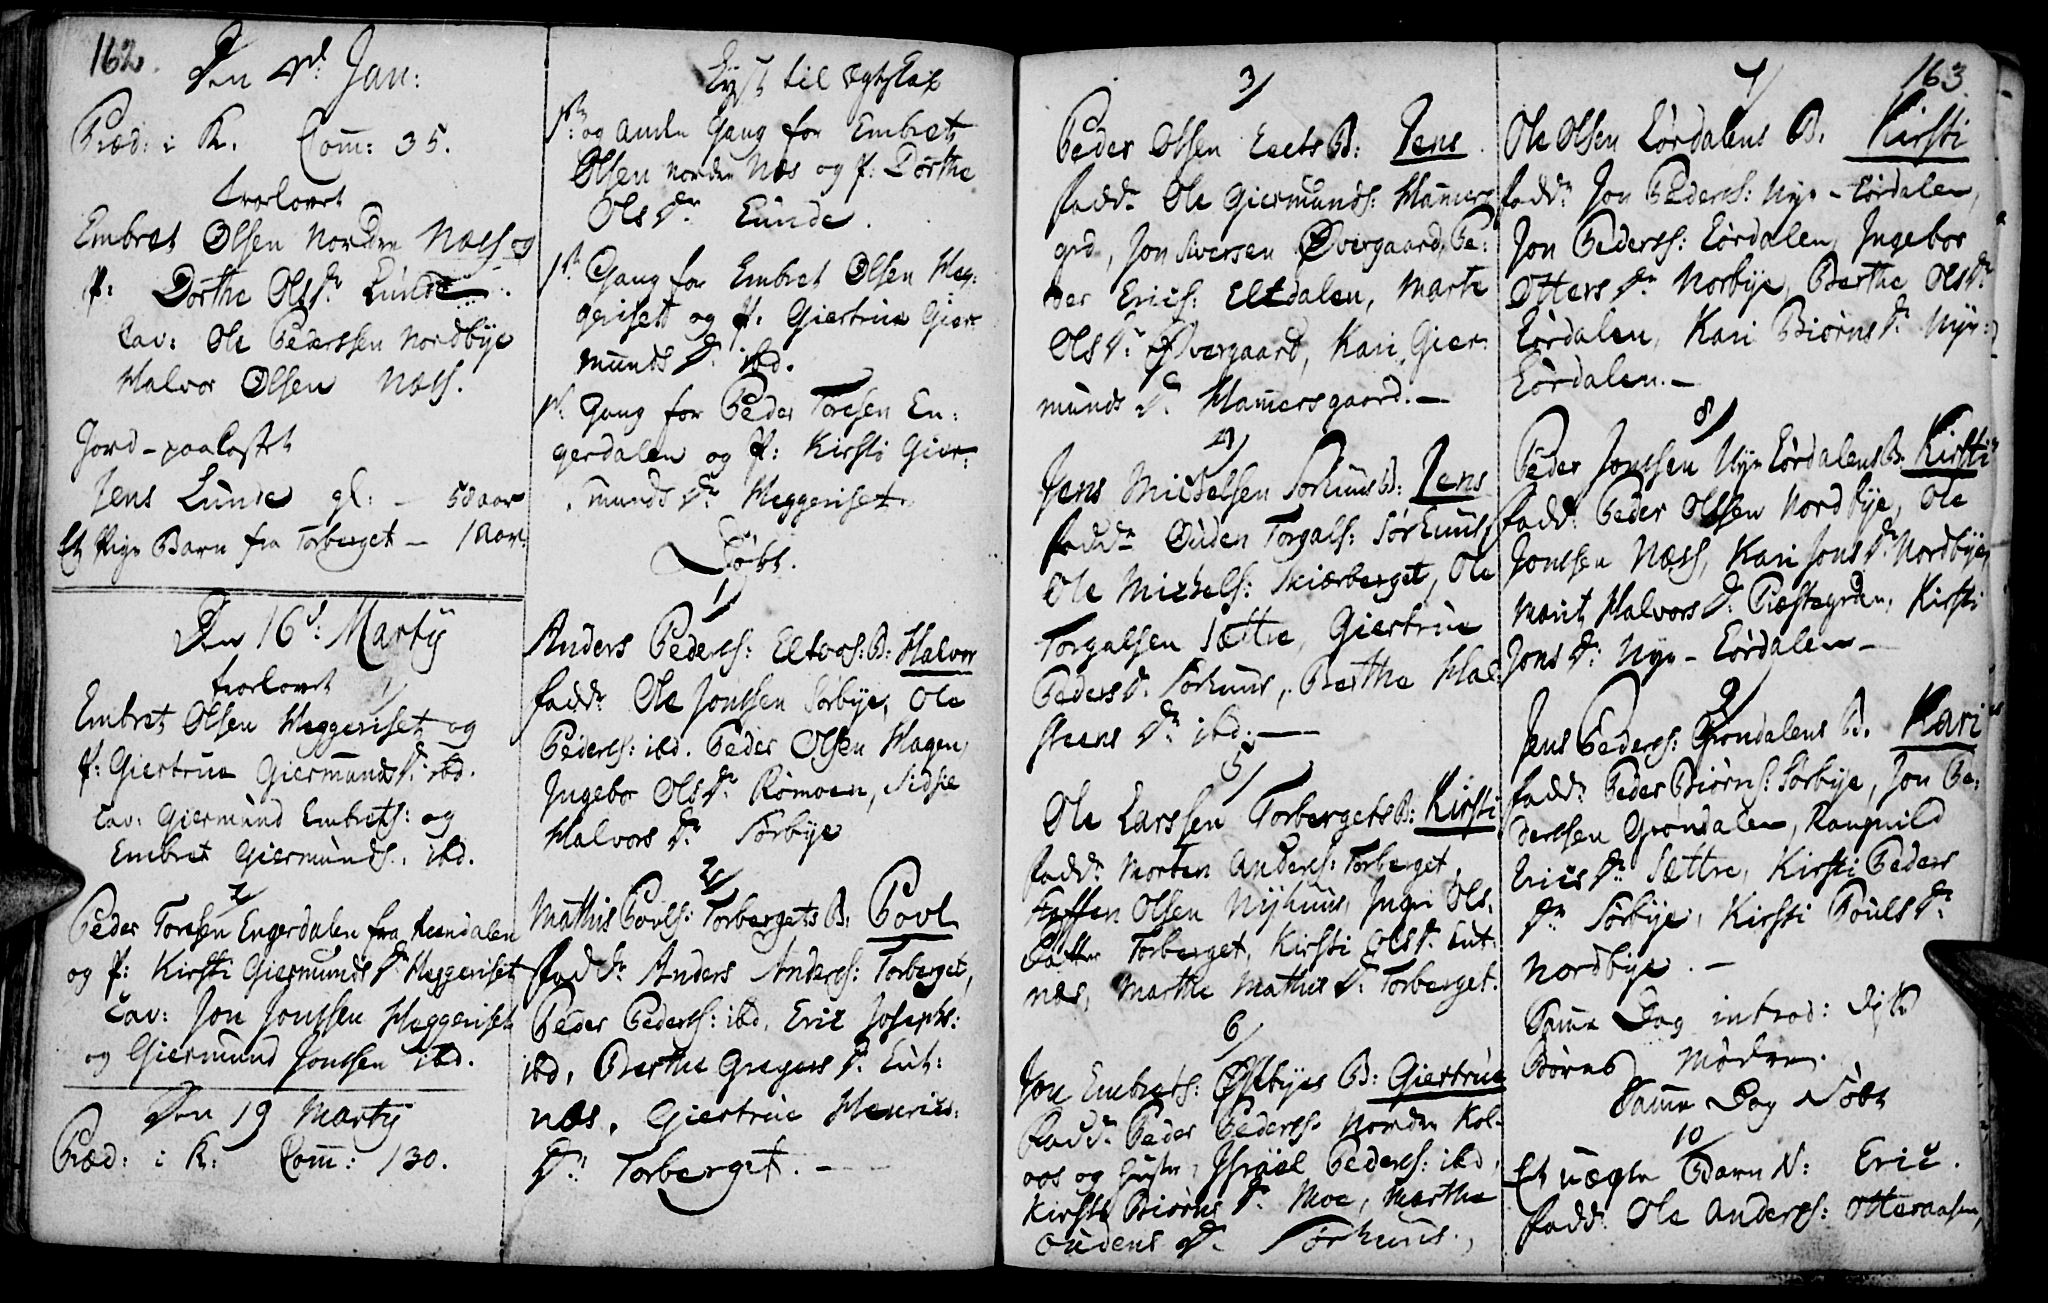 162.
Den 4d: Jan:
Præd: i K. Com: 35.
trolovet
Embret Olsen Nordre Næss og
P: Dorthe Olsdr Lunde.
Cav: Ole Pederssen Nordbye
Halvor Olsen Næss.
Jord-paakastet
Jens Lunde gl: - 58 aar
Et Pige Barn fra Torberget - 1 Aar.
Den 16d: Martij
trolovet
1/
Embret Olsen Heggeriset og
P: Giertrue Giermunds Dr ibd.
Cav: Giermund Embrets: og
Embret Giermunds. ibd.
2/
Peder Toresen Engerdalen fra Rendalen
og P: Kirsti Giermunds Dr Heggeriset
Cav: Jon Jonssen Heggeriset
og Giermund Jonssen ibd.
Den 19 Martij
Præd: i K: Com: 130.
Lyst til Egteskab
og anden Gang for Embret
Olsen Nordre Næs og P: Dorthe
Ols Dr Lunde.
1st Gang for Embret Olsen Heg:
geriset og P: Giertrue Gier
munds Dr ibd.
1st Gang for Peder Toresen En:
gerdalen og P: Kirsti Gier:
munds Dr Heggeriset.
Døbt.
1/
Anders Peders: Eltvos: B: Halvor
fadd: Ole Jonssen Sørbye, Ole
Peders: ibd. Peder Olsen Hagen,
Ingebor Ols Dr Rømoen, Sidsle
Halvors Dr Sørbye
2/
Mathis Povls: Torbergets B: Povl
fadd: Anders Anders: Torberget,
Peder Peders: ibd. Eric Josephs:
ibd. Berthe Gregers Dr Lut:
næs, Giertrue Henrics:
Dr Torberget. -
3/
Peder Olsen Eltets B: Jens.
fadd: Ole Giermunds: Hamers
grd, Jon Iversen Øvergaard, Pe:
der Erics: Eltdalen, Marte
Ols Dr Øvergaard, Kari Gier:
munds Dr Hamersgaard. -
4/
Jens Michelsen Sørhuus B: Jens
fadd: Ouden Torgals: Sørhuus,
Ole Michels: Skiærberget, Ole
Torgalsen Sættre, Giertrue
Peders Dr Sørhuus, Berthe Hal
steens Dr ibd. -
5/
Ole Larssen Torbergets B: Kirsti
fadd: Morten Anders: Torberget,
Steffen Olsen Nyhuus, Ingri Ols.
Datter Torberget, Kirsti Ols Dr Lut:
næs, Marthe Mathis Dr Torberget.
6/
Jon Embrets: Østbyes B: Giertrue
Fadd: Peder Peders: Nordre Kol-
oos og Hustr, Israel Peders: ibd,
Kirsti Biørns Dr Moe, Marthe
Oudens Dr Sørhuus.,
163.
7/
Ole Olsen Lørdalens B. Kirsti
fadd: Jon Peders: Nye-Lørdalen,
Jon Peders: Lørdalen, Ingebor
Otters Dr Norbye, Berthe Ols Dr
Lørdalen, Kari Biørns Dr Nye:
Lørdalen. -
8/
Peder Jonssen Nye Lørdalens B: Kirsti
fadd: Peder Olssen Nordbye, Ole
Jonssen Næss, Kari Jons Dr Nordbye,
Marit Halvors Dr Præstegrden, Kirsti
Jons Dr Nye-Lørdalen -
9/
Jens Peders: Grøndalens B. Kari
fadd: Peder Biørns: Sørbye, Jon Pe:
derssen Grøndalen, Rangnild
Erics Dr Sættre, Kirsti Peders
Dr Sørbye, Kirsti Pouls Dr
Nordbye. -
Samme Dag introd: disse
Børns Mødre.
Samme Dag døbt
10/
Et uægte Barn N: Eric.
fadd: Ole Anders: Otteraasen,